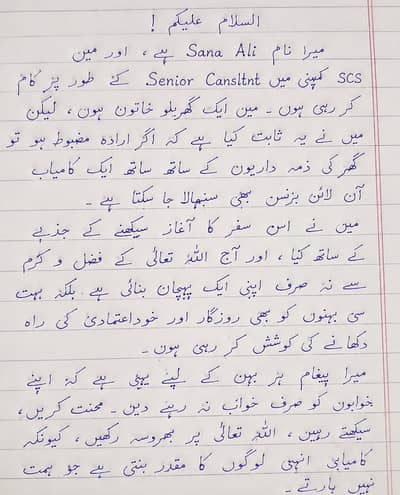 السلام علیکم !
میرا نام Sana Ali ہے ، اور مین
SCS کمپنی میں Senior Cansltnt کے طور پر کام
کر رہی ہوں ۔ مین ایک گھریلو خاتون ہون ، لیکن
میں نے یہ ثابت کیا ہے کہ اگر ارادہ مضبوط ہو تو
گھر کی ذمہ داریوں کے ساتھ ساتھ ایک کامیاب
آن لائن بزنس بھی سنبھالا جا سکتا ہے ۔
میں نے اس سفر کا آغاز سیکھنے کے جذبے
کے ساتھ کیا ، اور آج اللہ تعالیٰ کے فضل و کرم
سے نہ صرف اپنی ایک پہچان بنائی ہے بلکہ بہت
سی بہنوں کو بھی روزگار اور خوداعتمادی کی راہ
دکھانے کی کوشش کر رہی ہوں ۔
میرا پیغام ہر بہن کے لیئے یہی ہے کہ اپنے
خوابوں کو صرف خواب نہ رہنے دیں ۔ محنت کریں ،
سیکھتے رہیں ، اللہ تعالیٰ پر بھروسہ رکھیں ، کیونکہ
کامیابی انہی لوگوں کا مقدر بنتی ہے جو ہمت
نہیں ہارتے ۔